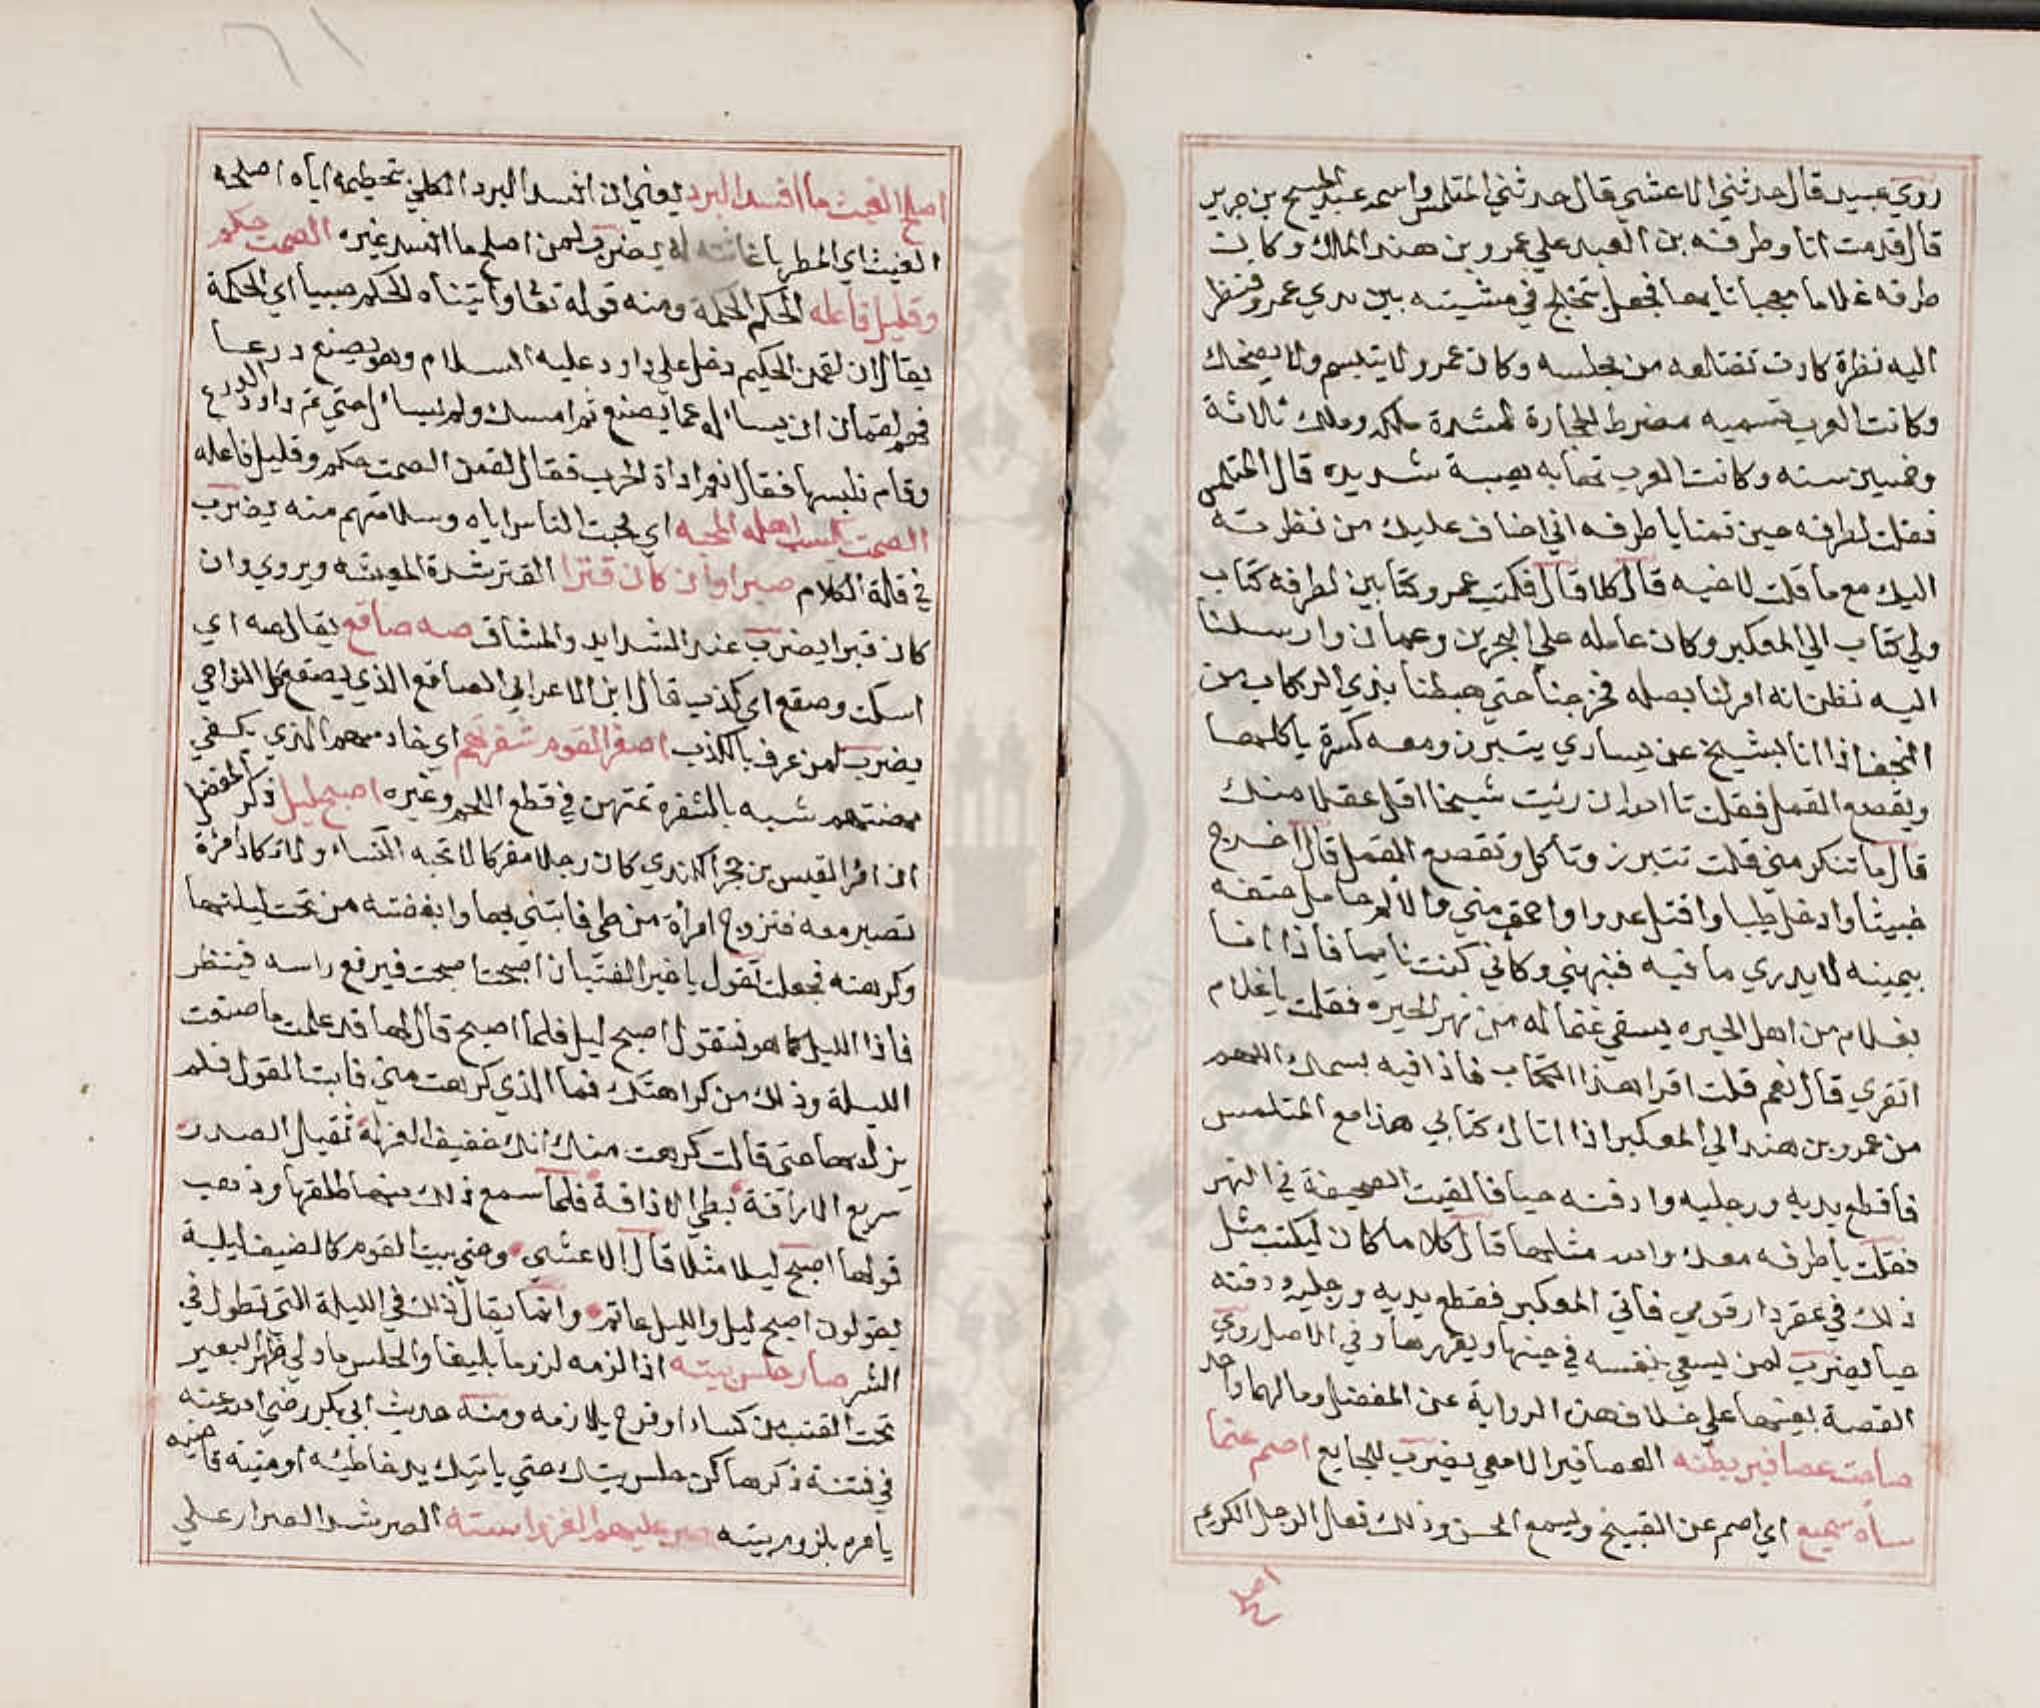 روي عبيد قال حدثني الاعشي قال حدثني المتلمس واسمه عبد المسيح بن جرير
قال قدمت انا وطرفه بن العبد علي عمرو بن هند الملك وكان
طرفه غلاما معجبا تايها فجعل يتخلج في مشيته بين يدي عمرو فنظر
اليه نظرة كادت تقتلعه من مجلسه وكان عمرو لا يتبسم ولا يضحك
وكانت العرب تسميه مضرط الحجارة لشدة ملكه وملك ثلاثة
وخمسين سنه وكانت العرب تهابه هيبة شديده قال المتلمس
فقلت لطرفه حين قمنا يا طرفه اني اخاف عليك من نظرته
اليك مع ما قلت لاخيه قال كلا قال فكتب عمرو كتابين لطرفه كتاب
ولي كتاب الي المعكبر وكان عامله علي البحرين وعمان وارسلنا
اليه نظن انه امر لنا بصله فخرجنا حتي هبطنا بذي الركاب من
النجف اذا انا بشيخ عن يساري يتبرز ومعه كسرة ياكلها
ويقصع القمل فقلت تا الله ان رئيت شيخا اقل عقلا منك
قال ما تنكر مني قلت تتبرز وتاكل وتقصع القمل قال اخرج
خبيثا وادخل طيبا واقتل عدوا واحمق مني والالم حامل حتفه
بيمينه لا يدري ما فيه فنبهني وكاني كنت نايما فاذا انا
بغلام من اهل الحيره يسقي غنما له من نهر الحيره فقلت يا غلام
اتقري قال نعم قلت اقرا هذا الكتاب فاذا فيه بسمك اللهم
من عمرو بن هند الي المعكبر اذا اتاك كتابي هذا مع المتلمس
فاقطع يديه ورجليه وادفنه حيا فالقيت الصحيفة في النهر
فقلت يا طرفه معك والله مثلها قال كلا ما كان ليكتب مثل
ذلك في عقر دار قومي فاتي المعكبر فقطع يديه ورجليه ودفنه
حيا يضرب لمن يسعي بنفسه في حينها ويغررها وفي الاصل روي
القصة بعينها علي خلاف هذه الرواية عن المفضل ومالهما واحد
صاحت عصافير بطنه العصافير الامعي يضرب للجايع اصم عما
ساه سميع اي اصم عن القبيح ويسمع الحسن وذلك فعال الرجل الكريم
اصلح
اصلح الغيث ما افسد البرد يعني ان افسد البرد الكلي بتحطيمه اياه اصلحه
الغيث اي المطر باغاثته له يضرب لمن اصلح ما افسد غيره الصمت حكم
وقليل فاعله الحكم الحكمة ومنه قوله تعا واتيناه الحكم صبيا اي الحكمة
يقال ان لقمن الحكيم دخل علي داود عليه السلام وهو يصنع درعا
فهم لقمان ان يساله عما يصنع ثم امسك ولم يسال حتي تم داود الدرع
وقام فلبسها فقال نعم اداة الحرب فقال لقمن الصمت حكم وقليل فاعله
الصمت يكسب اهله المحبه اي محبت الناس اياه وسلامتهم منه يضرب
في قلة الكلام صبرا وان كان قترا القتر شدة المعيشه ويروي وان
كان قبرا يضرب عند الشدايد والمشاق صه صاقع يقال صه اي
اسكت وصقع اي كذب قال ابن الاعرابي الصاقع الذي يصقع كل النواحي
يضرب لمن عرف بالكذب اصغر القوم شفرتهم اي خادمهم الذي يكفي
مهنتهم شبه بالشفره تمتهن في قطع اللحم وغيره اصبح ليل ذكر المفضل
ان امرا القيس بن حجر الكندي كان رجلا مفركا لا تحبه النساء ولا تكاد امراة
تصير معه فتزوج امرأة من طي فابتني بها وابغضته من تحت ليلتها
وكرهته فجعلت تقول يا خير الفتيان اصبحت اصبحت فيرفع راسه فينظر
فاذا الليل كما هو فتقول اصبح ليل فلما اصبح قال لها قد علمت ما صنعت
الليلة وذلك من كراهتك فما الذي كرهت مني فابت القول فلم
يزل بها حتي قالت كرهت منك انك خفيف العزلة ثقيل الصدر
سريع الاراقة بطي الافاقة فلما سمع ذلك منها طلقها وذهب
قولها اصبح ليلا مثلا قال الاعشي وحتي يبيت القوم كالضيف ليلة
يقولون اصبح ليل والليل عاتم وانما يقال ذلك في الليلة التي تطول في
الشر صار حلس بيته اذا لزمه لزوما بليغا والحلس ما ولي ظهر البعير
تحت القتب من كساء او نوح يلازمه ومنه حديث ابي بكر رضي الله عنه
في فتنة ذكرها كن حلس بيتك حتي ياتيك يد خاطئه او منية قاضيه
يامره بلزوم بيته صر عليهم الغزو استه الصر شد الصرار علي